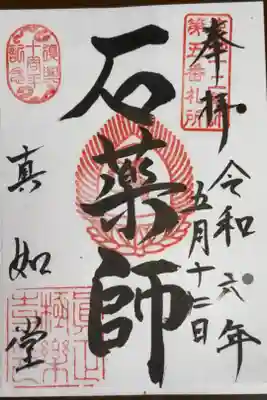 奉拝
第五番札所
令和六年
五月十二日
石薬師
真如堂